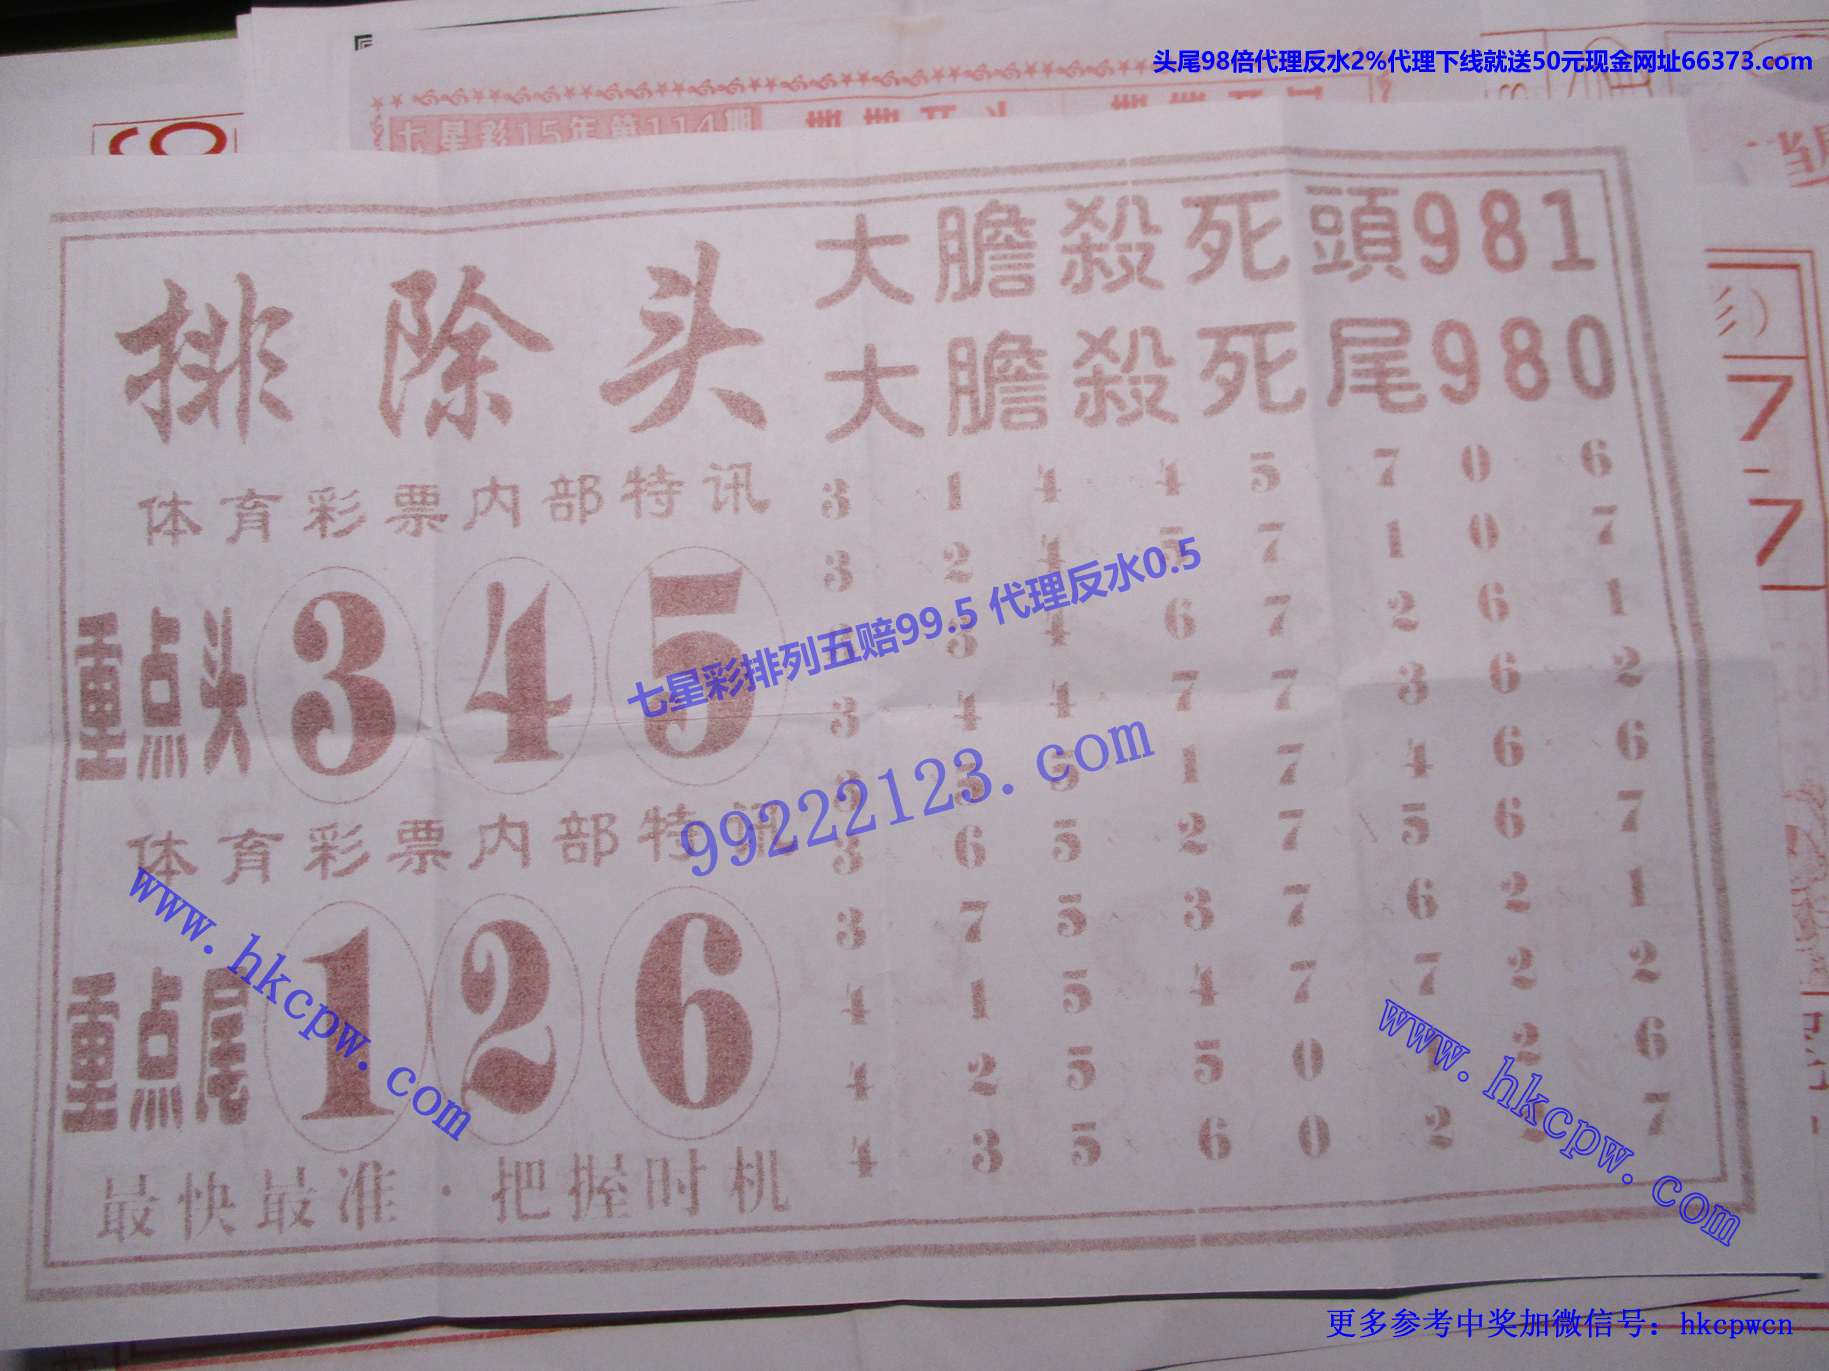 头尾98倍代理反水2%代理下线就送50元现金网址66373.com
七星彩15年第114期
排除头
大膽殺死頭981
大膽殺死尾980
体育彩票内部特讯
重点头 3 4 5
体育彩票内部特讯
重点尾 1 2 6
最快最准·把握时机
3 1 4 4 5 7 0 6
3 2 4 5 7 1 0 7
3 4 6 7 2 6 1
3 4 4 7 7 3 6 2
3 5 5 1 7 4 6 6
3 6 5 2 7 5 6 7
3 7 5 3 7 6 2 1
4 1 5 4 7 7 2 2
4 2 5 5 0 2 6
4 3 5 6 0 2 7
七星彩排列五赔99.5 代理反水0.5
99222123.com
www.hkcpw.com
www.hkcpw.com
7-7
更多参考中奖加微信号：hkcpwcn